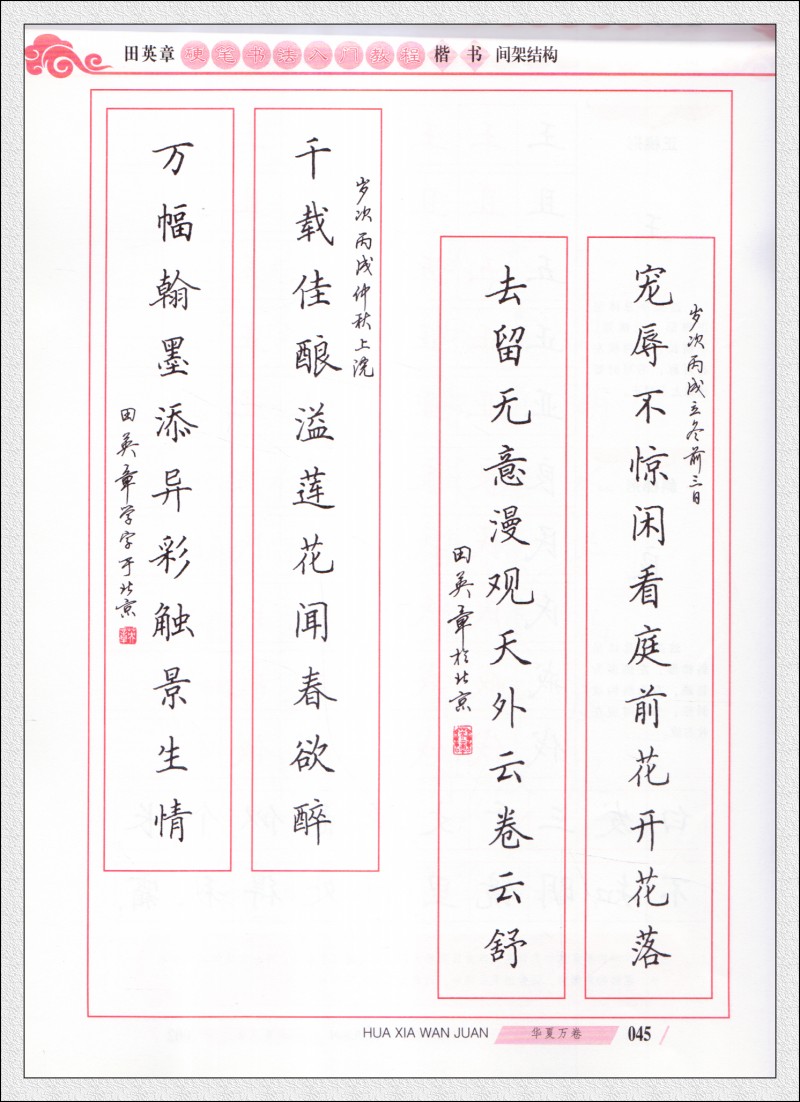 田英章硬笔书法入门教程楷书 间架结构
岁次丙戌立冬前三日
宠辱不惊闲看庭前花开花落
去留无意漫观天外云卷云舒
田英章于北京
岁次丙戌仲秋上浣
千载佳酿溢莲花闻春欲醉
万幅翰墨添异彩触景生情
田英章学字于北京
HUA XIA WAN JUAN 华夏万卷 045